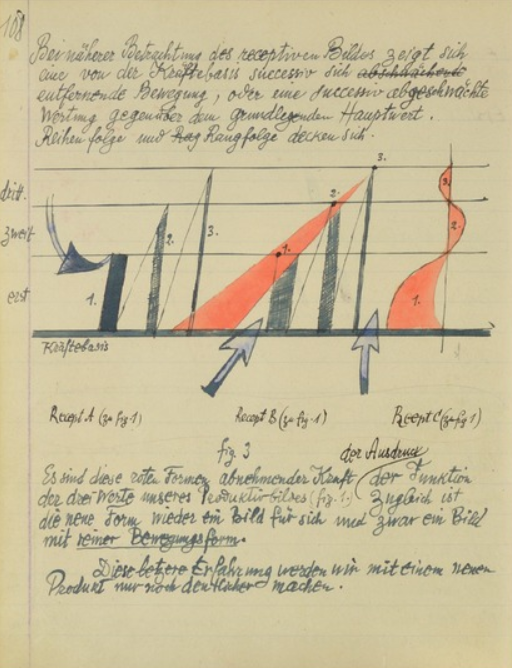 108
Bei näherer Betrachtung des receptiven Bildes zeigt sich
eine von der Kräftebasis successiv sich abschwächende
entfernende Bewegung, oder eine successiv abgeschwächte
Wertung gegenüber dem grundlegenden Hauptwert.
Reihenfolge und Rag Rangfolge decken sich.
3.
dritt.
3.
2.
zweit
2.
3.
2.
1.
erst
1.
1.
Kräftebasis
Recept A (zu fig 1)
Recept B (zu fig 1)
Recept C (zu fig 1)
fig 3
der Ausdruck
Es sind diese roten Formen abnehmender Kraft der Funktion
der drei Werte unseres Produktivbildes (fig. 1.) Zugleich ist
die neue Form wieder ein Bild für sich und zwar ein Bild
mit reiner Bewegungsform.
Diese letzere Erfahrung werden wir mit einem neuen
Produkt nur noch deutlicher machen.